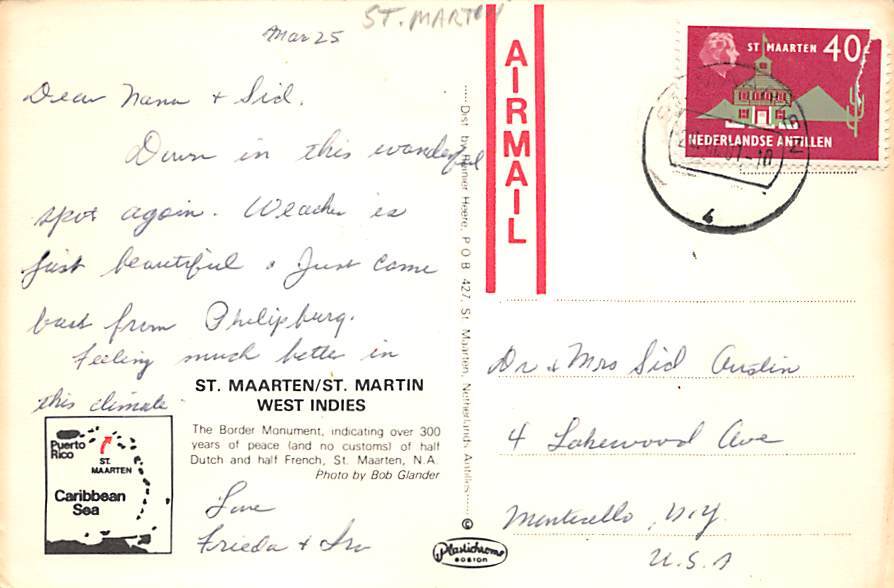 ST. MARTIN
Mar 25
Dear Nana + Sid.
Down in this wonderful
spot again. Weather is
just beautiful. Just came
back from Philipburg.
Feeling much better in
this climate.
Love
Frieda + Irv
ST. MAARTEN/ST. MARTIN
WEST INDIES
The Border Monument, indicating over 300
years of peace (and no customs) of half
Dutch and half French, St. Maarten, N.A.
Photo by Bob Glander
Puerto
Rico
ST.
MAARTEN
Caribbean
Sea
Dist. by Heere, P O B 427, St. Maarten, Netherlands Antilles
©
Plastichrome
BOSTON
AIRMAIL
ST MAARTEN 40
NEDERLANDSE ANTILLEN
6
Dr & Mrs Sid Austin
4 Lakewood Ave
Monticello, N.Y.
U.S.A